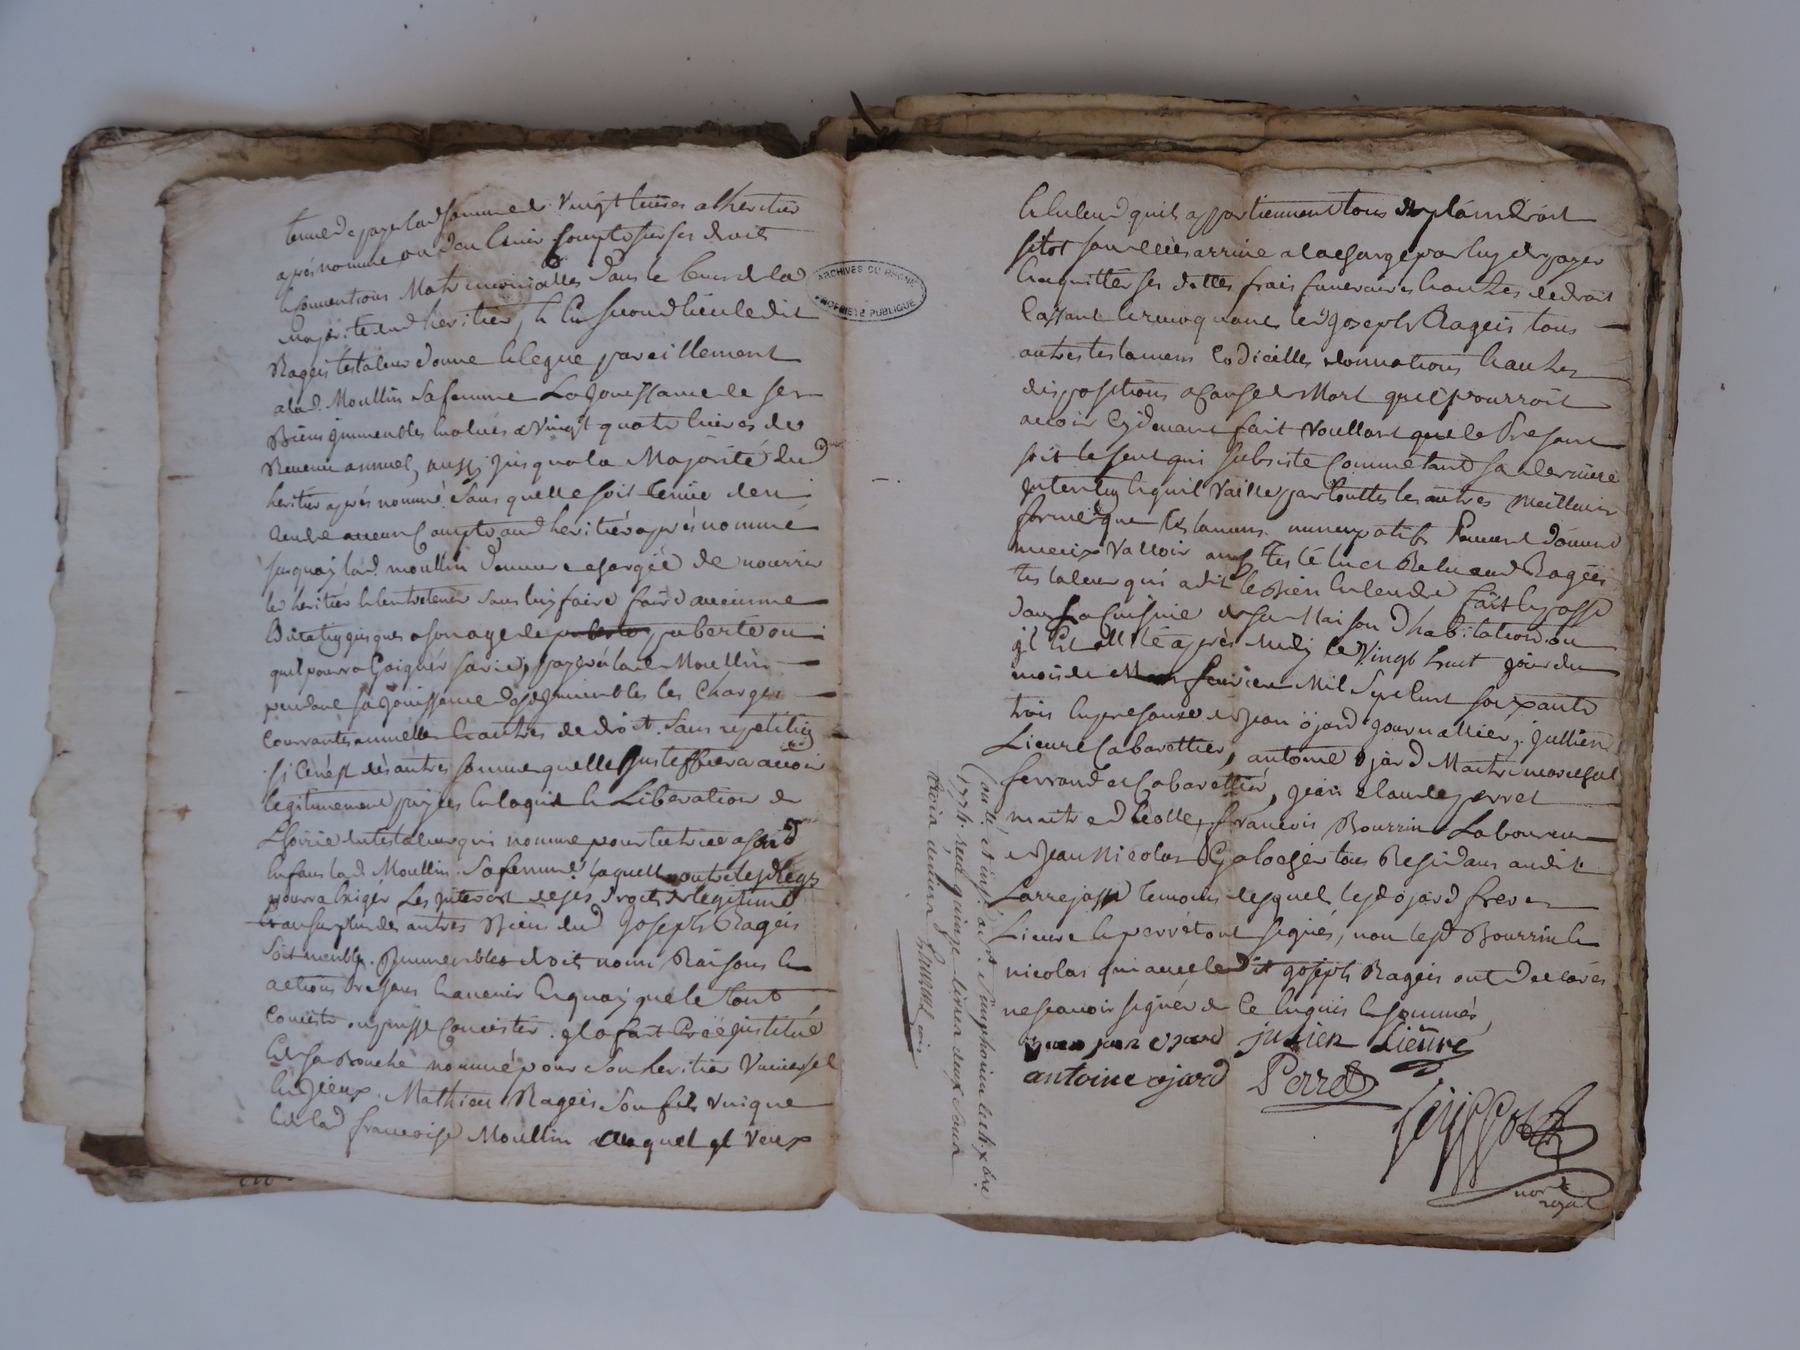 tenue de payer lad somme de vingt livres a l'heritier
après nommé ou d'en tenir compte sur ses droits
et conventions Matrimonialles dans le tems de la
Majorité dud heritier, et en second lieu ledit
Rageis testateur donne et legue pareillement
a lad. Moullin sa femme La Jouissance de ses
Biens immeubles évalués a vingt quatre livres de
Revenu annuel, aussy jusqu'a la Majorité dud
heritier après nommé sans quelle soit tenue d'en
rendre aucun Compte aud heritier après nommé
jusquoy lad. moullin demeure chargée de nourrir
led heritier et l'entretenir sans luy faire faire aucunne
jusques a son age de puberté ou
quil pourra Gaigner sa vie, payera lad Moullin
pendant sa Jouissance desd immeubles les Charges
Courrantes annuelles et autres de droit sans repetition
si ce n'est des autres sommes quelle justiffiera avoir
legitimement payées en laquit et Liberation de
L'hoirie du testateur qui nomme pour tutrice a sond
enfans lad. Moullin sa femme laquelle outre lesd legs
pourra exiger Les interest de ses droits de legitime
et au surplus des autres Bien dud Joseph Rageis
soit meubles immeubles droits noms Raisons et
actions Presans et avenir en quoy que le tout
Conciste ou puisse Conscister il a fait Créé institué
et de sa Bouche nommé pour son heritier Universel
Mathieu Rageis son fils unique
et de lad françoise Moullin auquel il veux
et entend quils appartiennent tous de plain droit
sitot son decès arrivé a la charge par luy de payer
et acquitter ses dettes frais funeraires et autres de droit
Cassant et revoquant led Joseph Rageis tous
autres testamens Codicilles donnations et autres
dispositions a Cause de Mort quil pourroit
avoir cy devant fait voullant que le Presant
soit le seul qui subsiste comme étant sa derniere
intention et quil vaille par touttes les autres meilleure
forme que testamens nuncupatifs peuvent doivent
mieux valloir ainsy testé lu et Relu aud Rageis
testateur qui a dit le Bien entendre fait et passé
dans la Cuisine de sa Maison d'habitation ou
il est allité après midy le vingt huit jour du
mois de fevrier Mil Sept Cent soixante
trois en presance de Jean ojard Journallier, Jullien
Lieure Cabarettier, antoine ojard Maitre marechal
ferrand et Cabarettier, Jean claude perret
maitre d'école, françois Bourrin Laboureur
et Jean Nicolas Galoché tous Residans audit
Larrejasse temoins desquels lesd ojard freres
Lieure et perret ont signés, non lesd Bourrin et
nicolas qui avec ledit joseph Rageis ont declarés
ne sçavoir signer de ce enquis et sommés
jean ojard julien Lieure
antoine ojard Perret
nore
royal
1774. reçu quinze livres deux sous
ARCHIVES DU RHÔNE
PROPRIÉTÉ PUBLIQUE